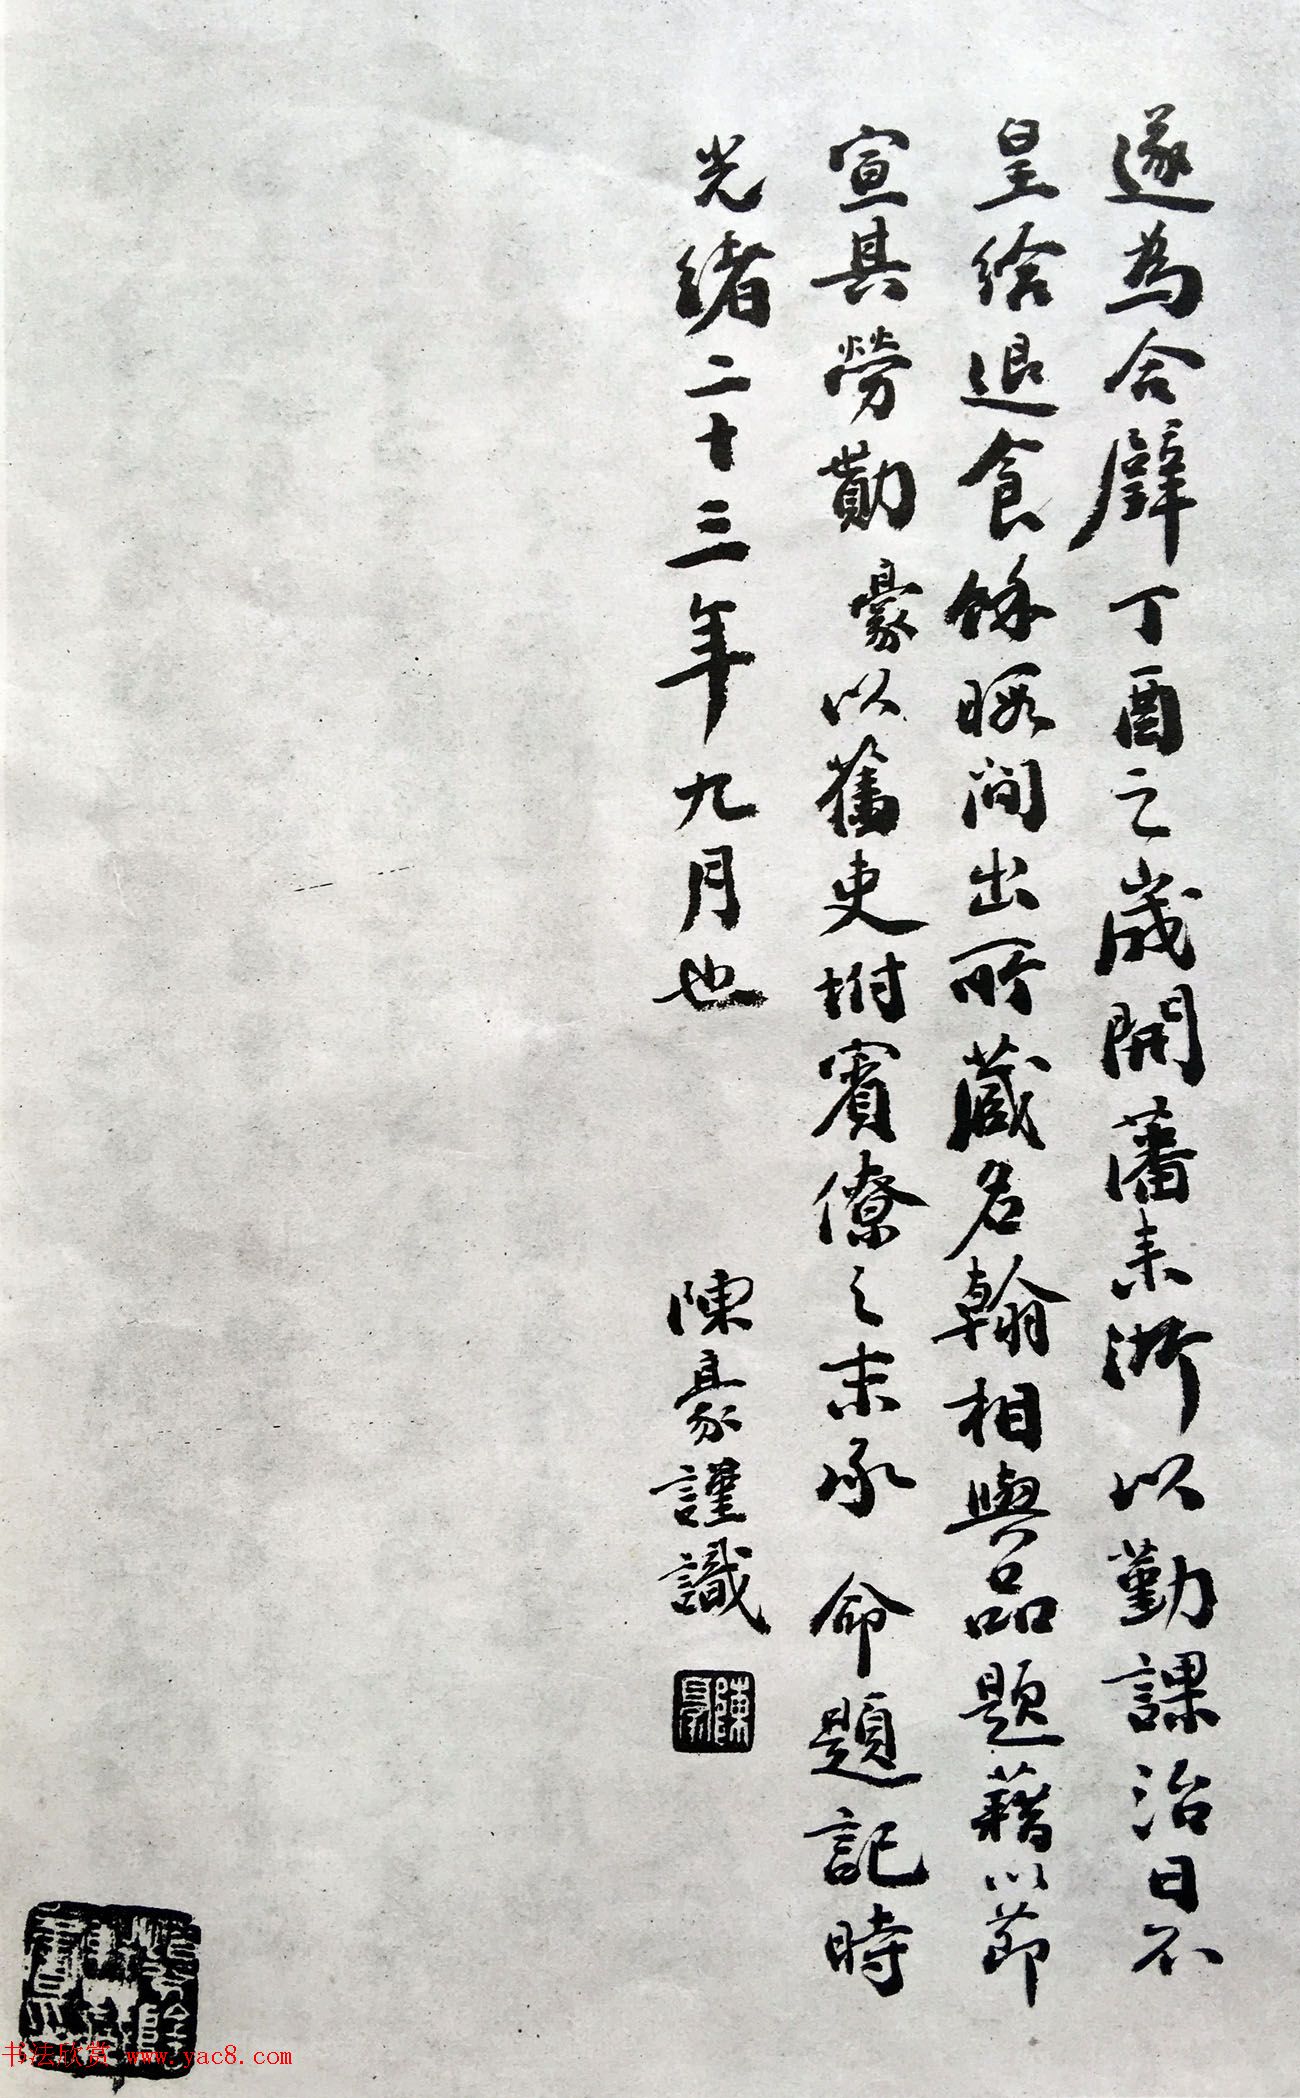 遂為合璧丁酉之歲開藩來浙以勤課治日不
皇給退食餘暇間出所藏名翰相與品題藉以節
宣其勞勩豪以舊吏坿賓僚之末承命題記時
光緒二十三年九月也
陳豪謹識
陳豪
书法欣赏 www.yac8.com